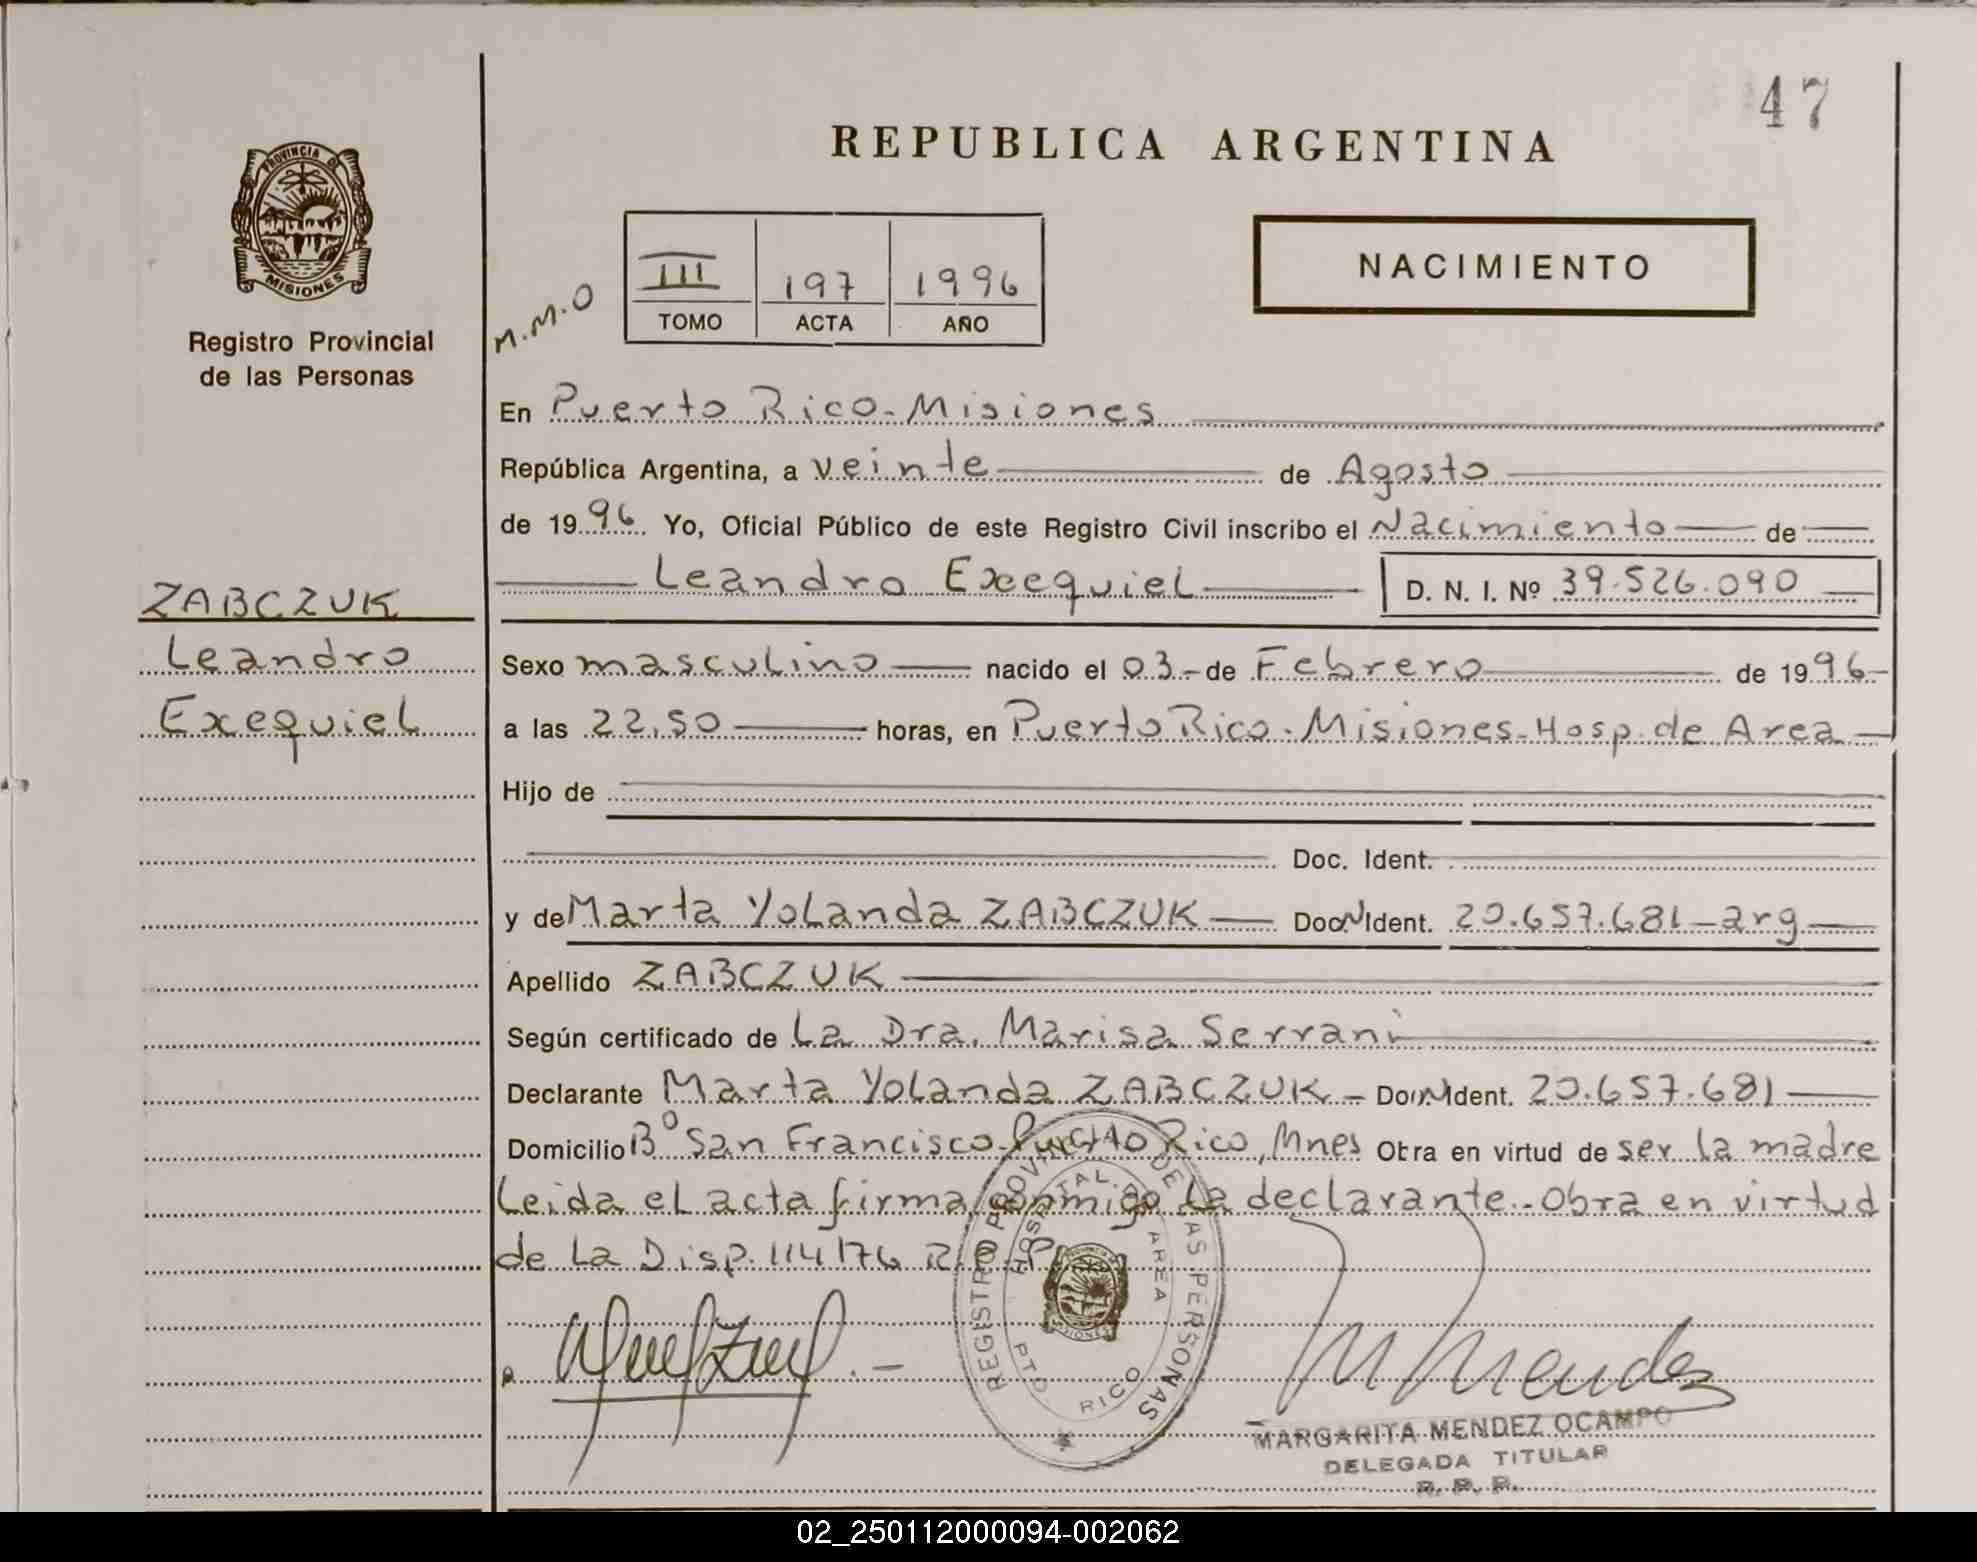 47
REPUBLICA ARGENTINA
PROVINCIA DE
MISIONES
Registro Provincial
de las Personas
M.M.O
III 197 1996
TOMO ACTA AÑO
NACIMIENTO
En Puerto Rico - Misiones
República Argentina, a veinte de Agosto
de 1996 Yo, Oficial Público de este Registro Civil inscribo el Nacimiento de
Leandro Exequiel D. N. I. Nº 39.526.090
ZABCZUK
Leandro
Exequiel
Sexo masculino nacido el 03 - de Febrero de 1996 -
a las 22,50 horas, en Puerto Rico - Misiones - Hosp. de Area -
Hijo de
Doc. Ident.
y de Marta Yolanda ZABCZUK Doc. Ident. 20.657.681 - arg
Apellido ZABCZUK
Según certificado de La Dra. Marisa Serrani
Declarante Marta Yolanda ZABCZUK - Ident. 20.657.681
Domicilio Bº San Francisco - Puerto Rico, Mnes Obra en virtud de ser la madre
Leida el acta firma conmigo la declarante.- Obra en virtud
de la Disp. 114/76 R.P.P.
REGISTRO PROVINCIAL DE LAS PERSONAS
HOSPITAL DE AREA
PTO RICO
MISIONES
M Mendez
MARGARITA MENDEZ OCAMPO
DELEGADA TITULAR
R. P. P.
02_250112000094-002062